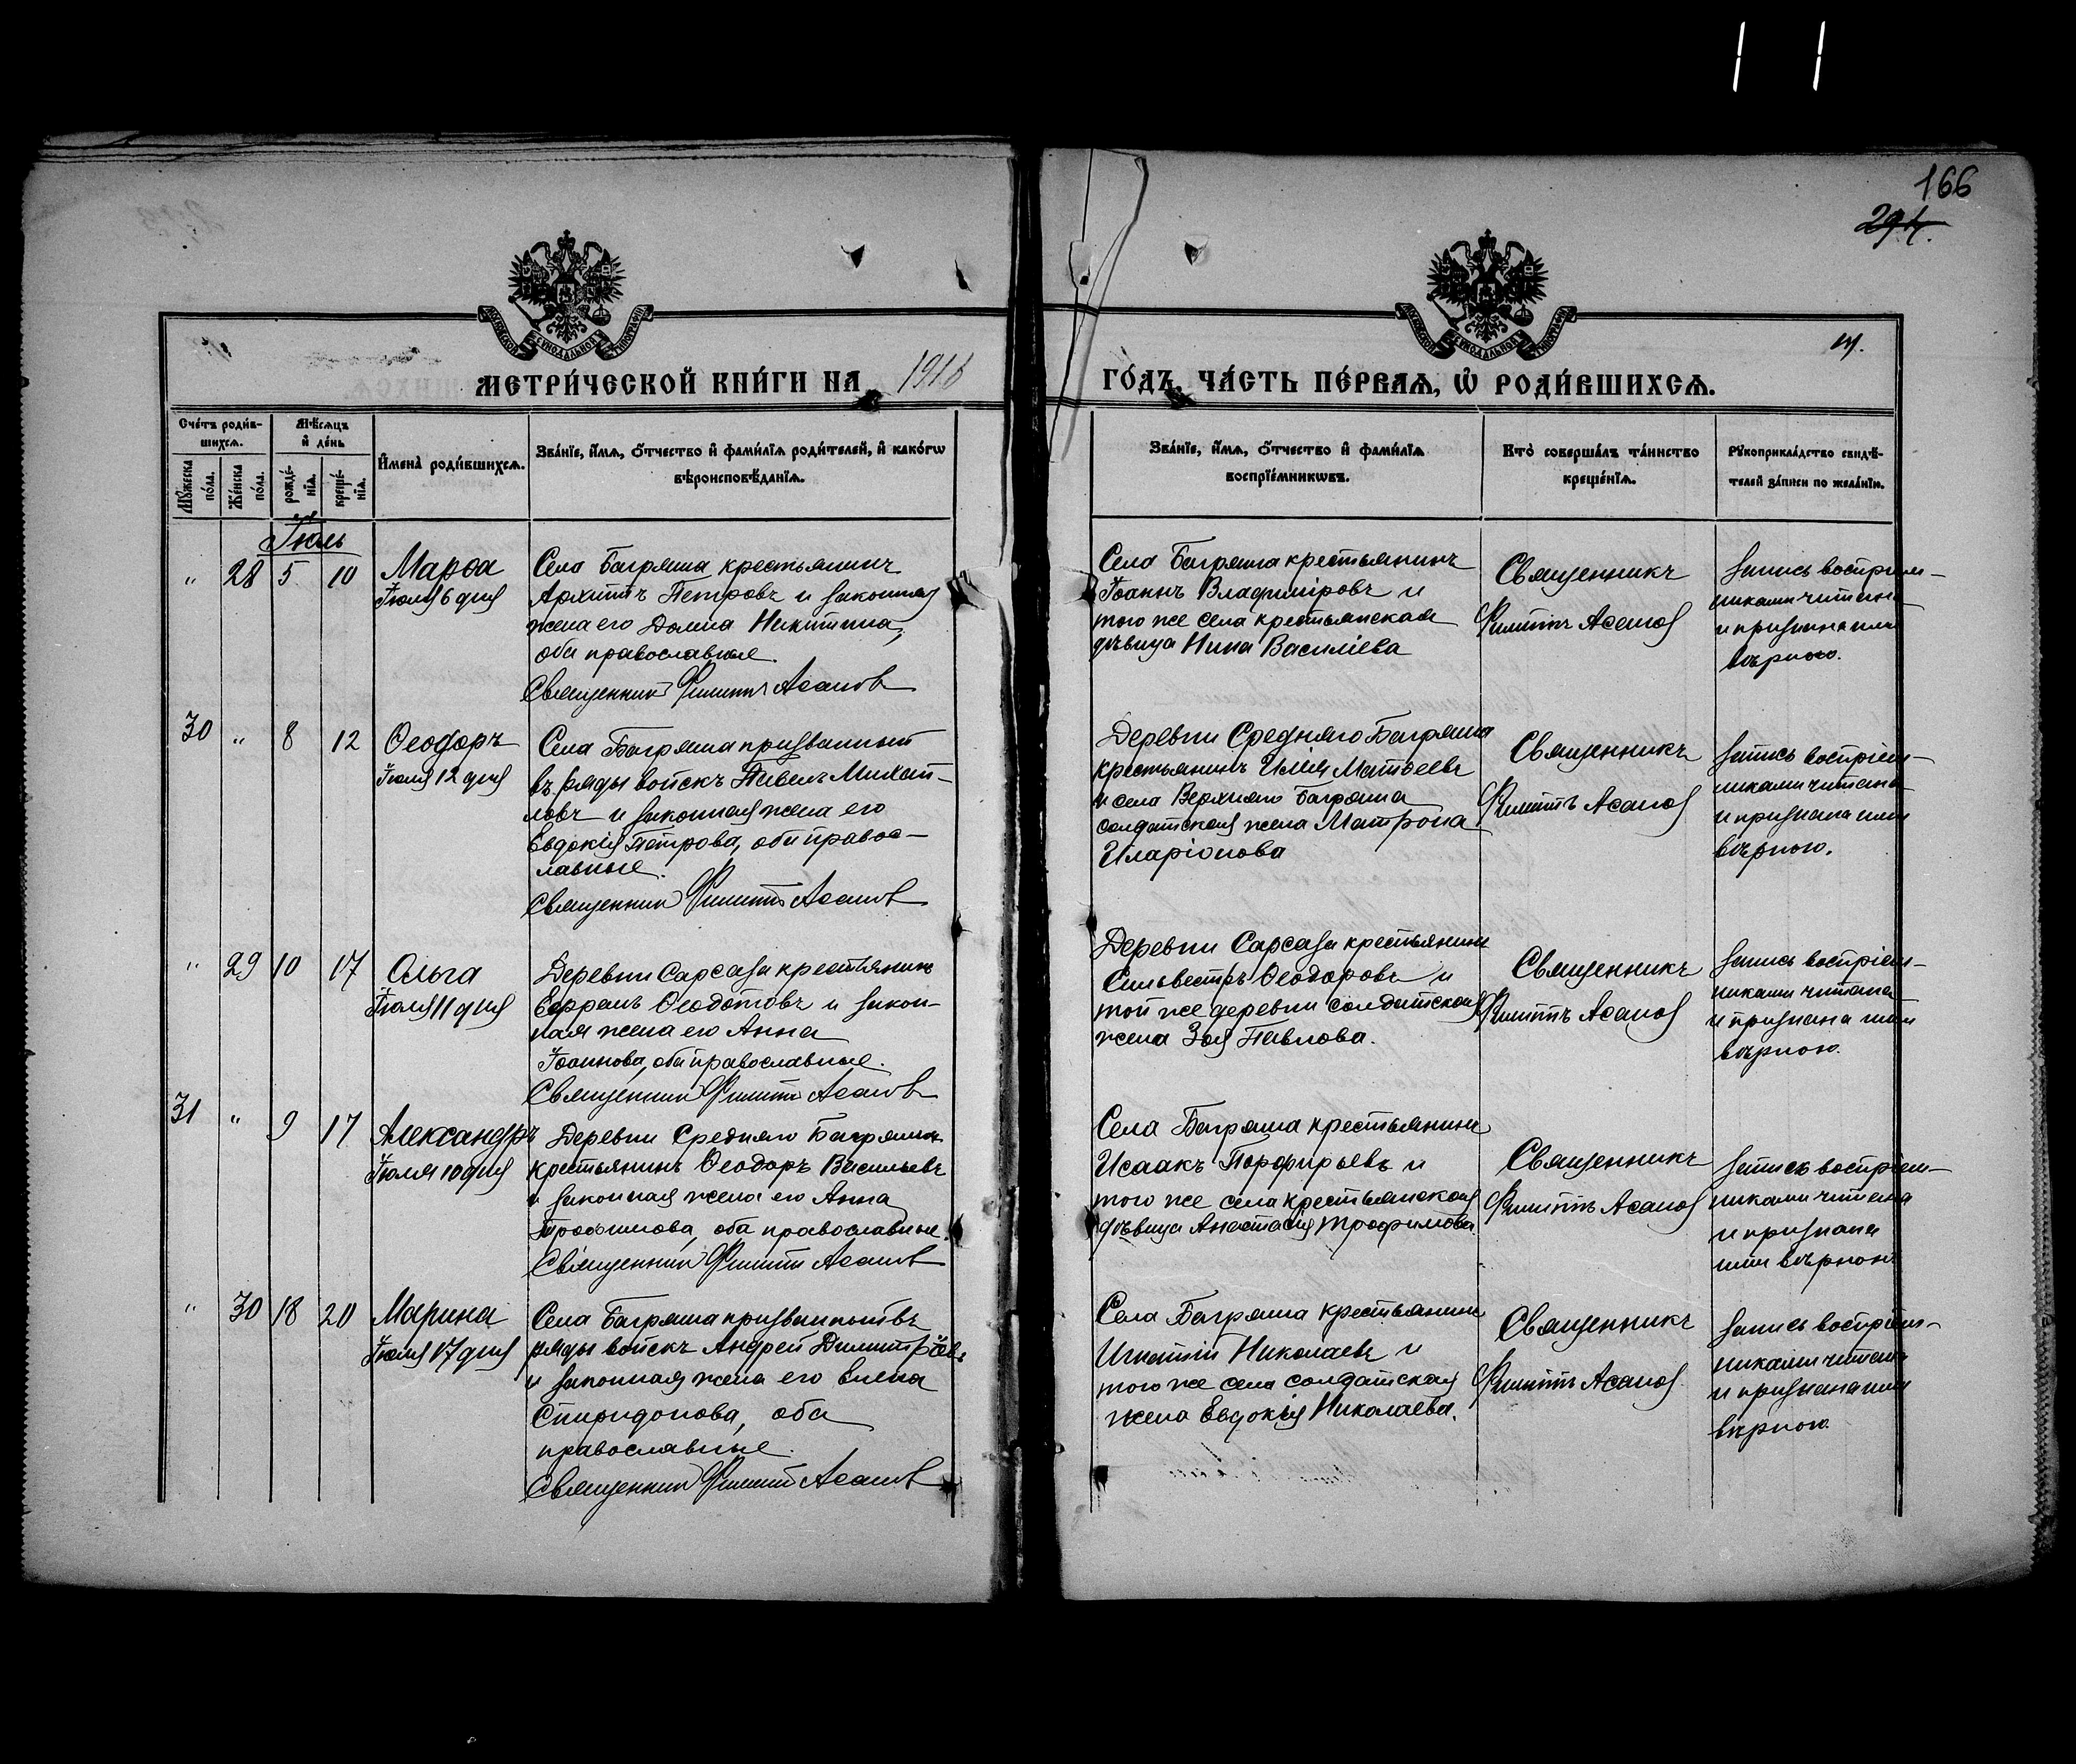 166
294.
МОСКОВСКОЙ СѴНОДАЛЬНОЙ ТИПОГРАФІИ
МОСКОВСКОЙ СѴНОДАЛЬНОЙ ТИПОГРАФІИ
МЕТРИ́ЧЕСКОЙ КНИ́ГИ НА 1916
ГО́ДЪ, ЧА́СТЬ ПЕ́РВАѦ, Ѿ РОДИ́ВШИХСѦ.
Сче́тъ роди́в-
шихсѧ.
Мѣ́сѧцъ
и҆ де́нь
Мꙋ́жеска
по́ла.
Же́нска
по́ла.
рожде́-
нїѧ.
креще́-
нїѧ.
И҆мена̀ роди́вшихсѧ.
Зва́нїе, и҆́мѧ, ѻ҆́тчество и҆ фами́лїѧ роди́телей, и҆ како́гѡ
вѣроисповѣ́данїѧ.
Зва́нїе, и҆́мѧ, ѻ҆́тчество и҆ фами́лїѧ
воспрїе́мникѡвъ.
Кто̀ соверша́лъ та́инство
креще́нїѧ.
Рꙋкоприкла́дство свидѣ́-
телей за́писи по жела́нїю.
Іюль
" 28 5 10
Марѳа
Іюля 6 дня
Села Багряша крестьянинъ
Архиппъ Петровъ и законная
жена его Домна Никитина,
оба православные.
Священникъ Филиппъ Асанов
Села Багряша крестьянинъ
Іоаннъ Владиміровъ и
того же села крестьянская
дѣвица Нина Василіева
Священникъ
Филиппъ Асанов
Запись воспріем-
никами читана
и признана ими
вѣрною.
30 " 8 12
Ѳеодоръ
Іюля 12 дня
Села Багряша призванный
въ ряды войскъ Павелъ Михай-
ловъ и законная жена его
Евдокія Петрова, оба право-
славные.
Священник Филиппъ Асанов
Деревни Средняго Багряша
крестьянинъ Илія Матѳеевъ
и села Верхняго Багряша
солдатская жена Матрона
Иларіонова
Священникъ
Филиппъ Асанов
Запись воспріем-
никами читана
и признана ими
вѣрною.
" 29 10 17
Ольга
Іюля 11 дня
Деревни Сарсазы крестьянинъ
Ефремъ Ѳеодотовъ и закон-
ная жена его Анна
Іоаннова, оба православные.
Священник Филиппъ Асанов
Деревни Сарсазы крестьянинъ
Сильвестръ Ѳеодоровъ и
той же деревни солдатская
жена Зоя Павлова.
Священникъ
Филиппъ Асанов
Запись воспріем-
никами читана
и признана ими
вѣрною.
31 " 9 17
Александръ
Іюля 10 дня
Деревни Средняго Багряша
крестьянинъ Ѳеодоръ Васильевъ
и законная жена его Анна
Трофимова, оба православные.
Священник Филиппъ Асанов
Села Багряша крестьянинъ
Исаакъ Порфирьевъ и
того же села крестьянская
дѣвица Анастасія Трофимова.
Священникъ
Филиппъ Асанов
Запись воспріем-
никами читана
и признана
ими вѣрною
" 30 18 20
Марина
Іюля 17 дня
Села Багряша призванный въ
ряды войскъ Андрей Димитріевъ
и законная жена его Елена
Спиридонова, оба
православные.
Священник Филиппъ Асанов
Села Багряша крестьянинъ
Игнатій Николаевъ и
того же села солдатская
жена Евдокія Николаева.
Священникъ
Филиппъ Асанов
Запись воспріем-
никами читана
и признана ими
вѣрною.